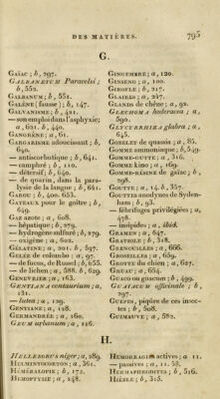 DES MATIÈRES. 795
G.
GAÏAC; b, 297.
GALBANETUM Paracelsi;
b, 552.
GALBANUM; b, 551.
GALÈNE (fausse); b, 147.
GALVANISME; b, 421.
— son emploi dans l'asphyxie;
a, 621. b, 440.
GANGRÈNE; a, 61.
GARGARISME adoucissant; b,
640.
— antiscorbutique; b, 641.
— camphré; b, 110.
— détersif; b, 640.
— de quarin, dans la para-
lysie de la langue; b, 641.
GAROU; b, 400. 653.
GATEAUX pour le goître; b,
649.
GAZ azote; a, 608.
— hépatique; b, 279.
— hydrogène sulfuré; b, 279.
— oxigène; a, 602.
GÉLATINE; a, 201. b, 597.
GELÉE de colombo; a, 97.
— de fucus, de Russel; b, 655.
— de lichen; a, 588. b, 629.
GENEVRIER; a, 163.
GENTIANA centaurium; a,
131.
— lutea; a, 129.
GENTIANE; a, 128.
GERMANDRÉE; a, 160.
GEUM urbanum; a, 126.
GINGEMBRE; a, 120.
GINSENG; a, 120.
GIROFLE; b, 217.
GLAIRES; a, 217.
GLANDS de chêne; a, 92.
GLECHOMA hederacea; a,
590.
GLYCYRRHIZA glabra; a,
645.
GOBELET de quassia; a, 85.
GOMME ammoniaque; b, 549.
GOMME-GUTTE; a, 316.
GOMME kino; a, 169.
GOMME-RÉSINE de gaïac; b,
298.
GOUTTE; a, 14. b, 357.
GOUTTES anodynes de Syden-
ham; b, 93.
— fébrifuges privilégiées; a,
478.
— insipides; a, ibid.
GRAMEN; a, 647.
GRATIOLE; b, 318.
GRENOUILLES; a, 666.
GROSEILLES; a, 659.
GROTTE du chien; a, 627.
GRUAU; a, 654.
GUACO ou giacum; b, 499.
GUAIACUM officinale; b,
297.
GUEPES, piqûre de ces insec-
tes; b, 508.
GUIMAUVE; a, 582.
H.
HELLEBORUS niger; a, 289.
HELMINTOCORTON; a, 361.
HÉMÉRALOPIE; b, 171.
HÉMOPTYSIE; a, 248.
HÉMORRAGIES actives; a, 11.
— passives; a, 11. 58.
HERMAPHRODITES; b, 516.
HIÈBLE; b, 315.